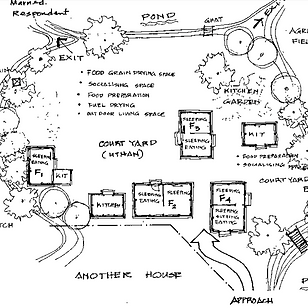 Married
Respondent
POND
GHAT
EXIT
AGRI
FIEL
• FOOD GRAIN DRYING SPACE
• SOCIALISING SPACE
• FOOD PREPARATION
• FUEL DRYING
• OUTDOOR LIVING SPACE
KITCHEN
GARDEN
SLEEPING
F3
SLEEPING
EATING
KIT
COURT YARD
(UTHAN)
• FOOD PREPARATION
• SOCIALISING
SLEEPING
EATING
F1
KIT
COURTYARD
KITCHEN
SLEEPING
EATING
SLEEPING
F2
SLEEPING
F4
SLEEPING
EATING
ANOTHER HOUSE
APPROACH